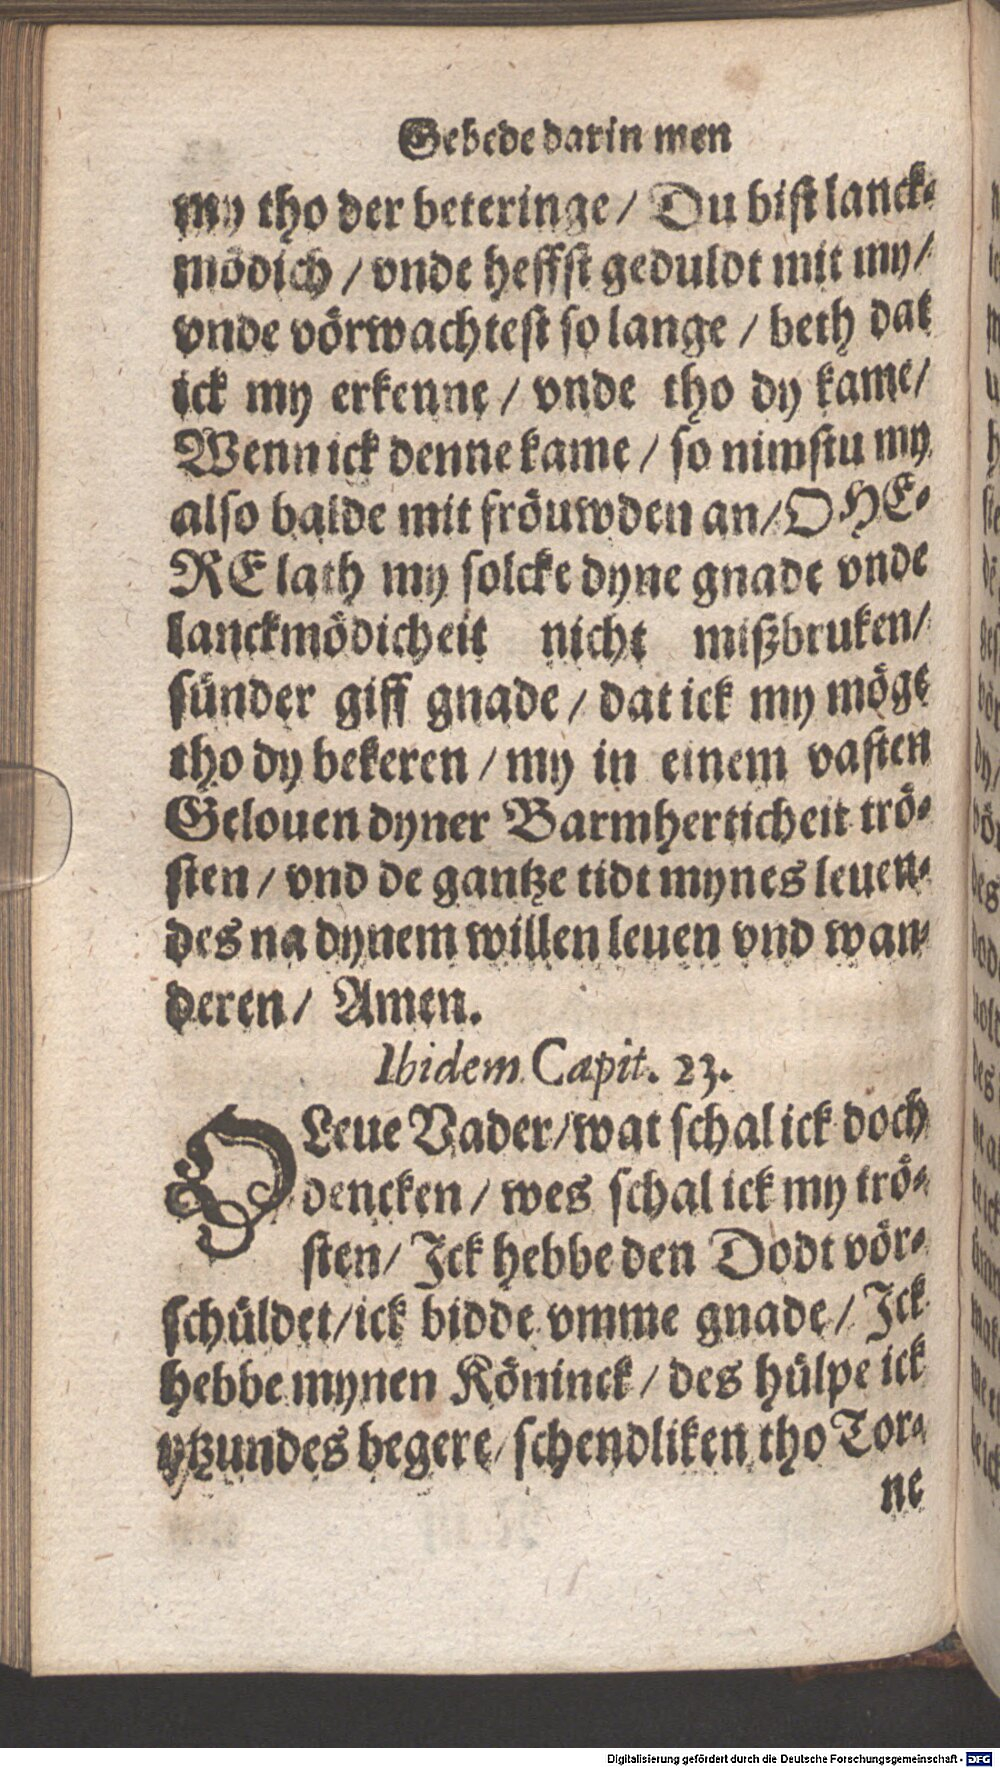 Gebede darin men
my tho der beteringe / Du bist lanck-
mödich / vnde heffst geduldt mit my /
vnde vörwachtest so lange / beth dat
ick my erkenne / vnde tho dy kame /
Wenn ick denne kame / so nimstu my
also balde mit fröuwden an / O HE-
RE lath my solcke dyne gnade vnde
lanckmödicheit nicht mißbruken /
sünder giff gnade / dat ick my möge
tho dy bekeren / my in einem vasten
Gelouen dyner Barmherticheit trö-
sten / vnd de gantze tidt mynes leuen-
des na dynem willen leuen vnd wan-
deren / Amen.
Ibidem Capit. 23.
O Leue Vader / wat schal ick doch
dencken / wes schal ick my trö-
sten / Ick hebbe den Dodt vör-
schüldet / ick bidde vmme gnade / Ick
hebbe mynen Köninck / des hülpe ick
ytzundes begere / schendliken tho Tor-
ne
Digitalisierung gefördert durch die Deutsche Forschungsgemeinschaft - DFG